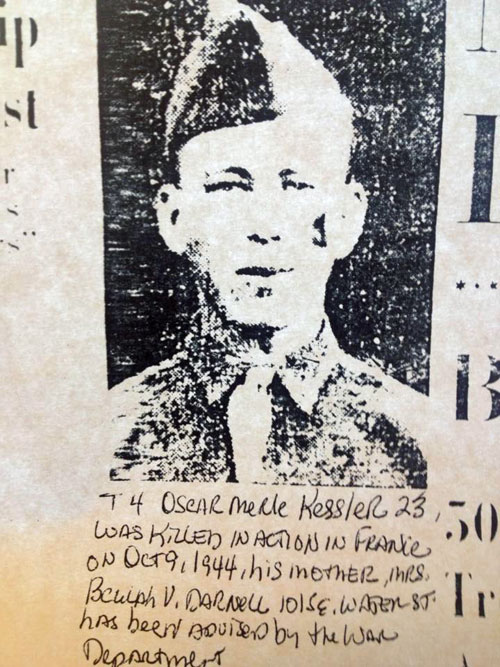 ip
st
T 4 OSCAR MERLE KESSLER 23,
WAS KILLED IN ACTION IN FRANCE
ON OCT 9, 1944, his MOTHER, MRS.
BEULAH V. DARNELL 101 S E. WATER ST.
has been ADVISED by the WAR
Department
B
50
Tr